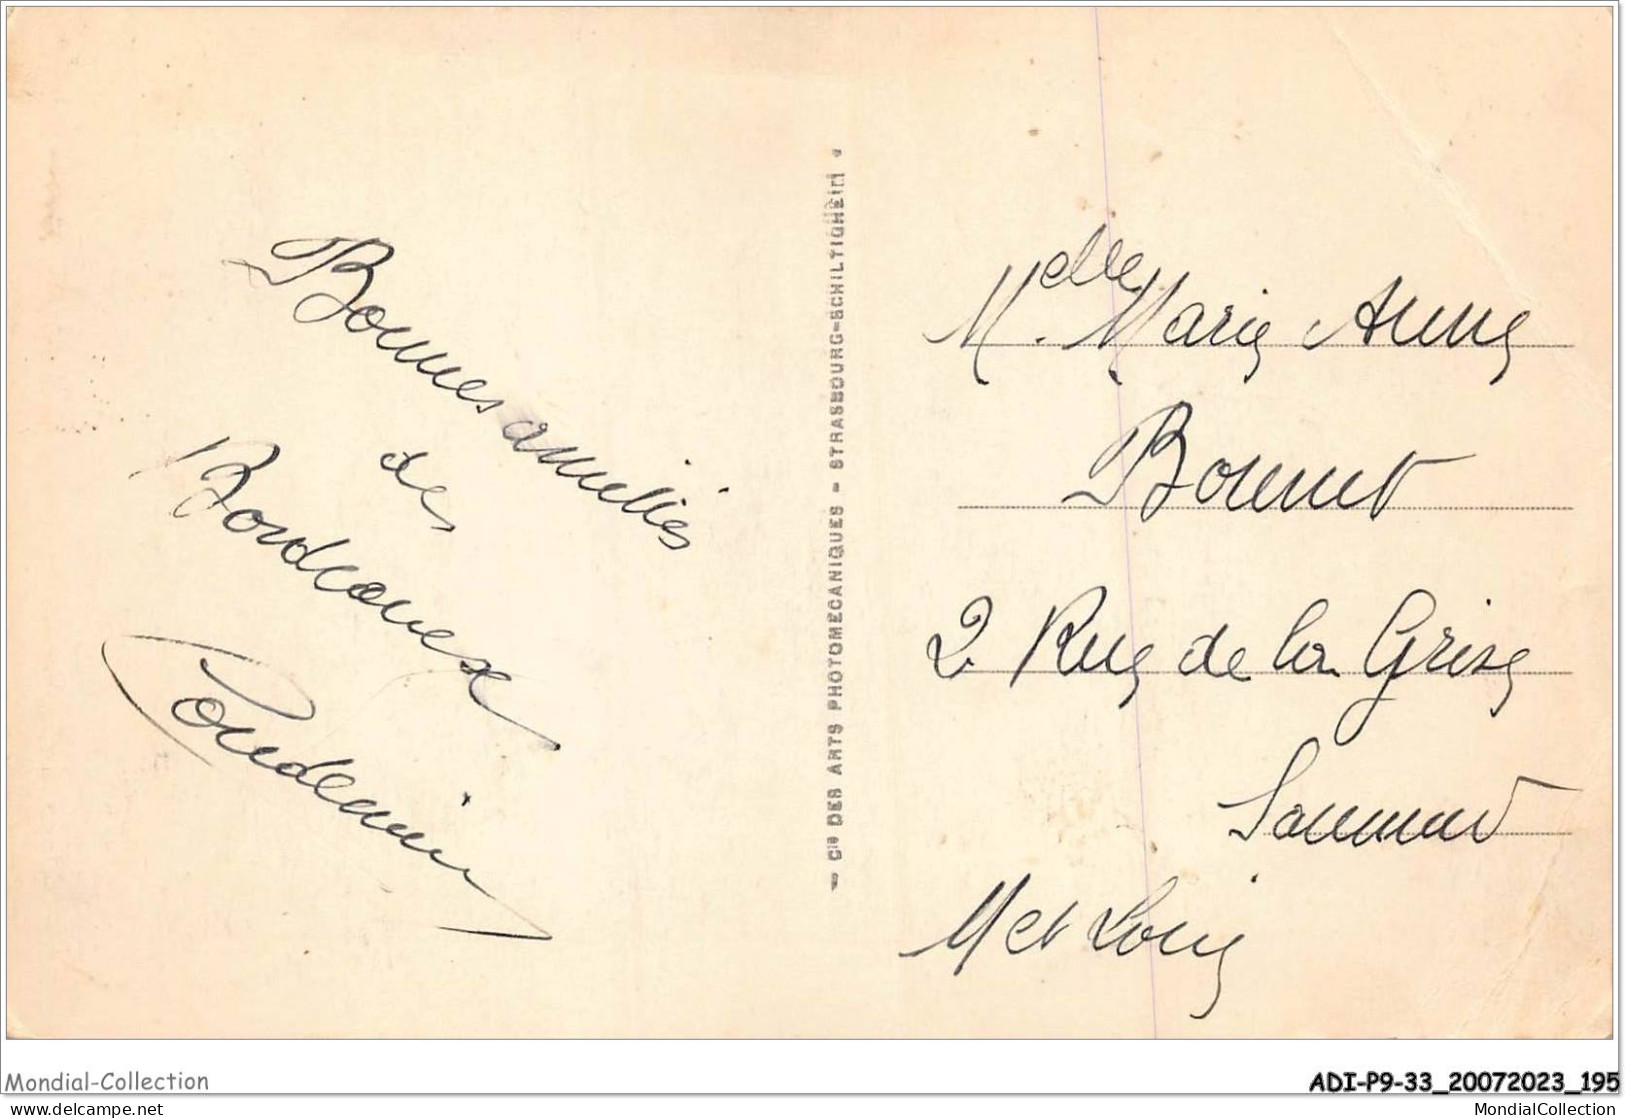 Bonnes amitiés
des
Bordeaux
- Cie DES ARTS PHOTOMECANIQUES - STRASBOURG-SCHILTIGHEIM -
Melle. Marie Anne
Bonnet
2 Rue de la Grise
Saumur
M et Loire
Mondial-Collection
ADI-P9-33_20072023_195
www.delcampe.net
MondialCollection